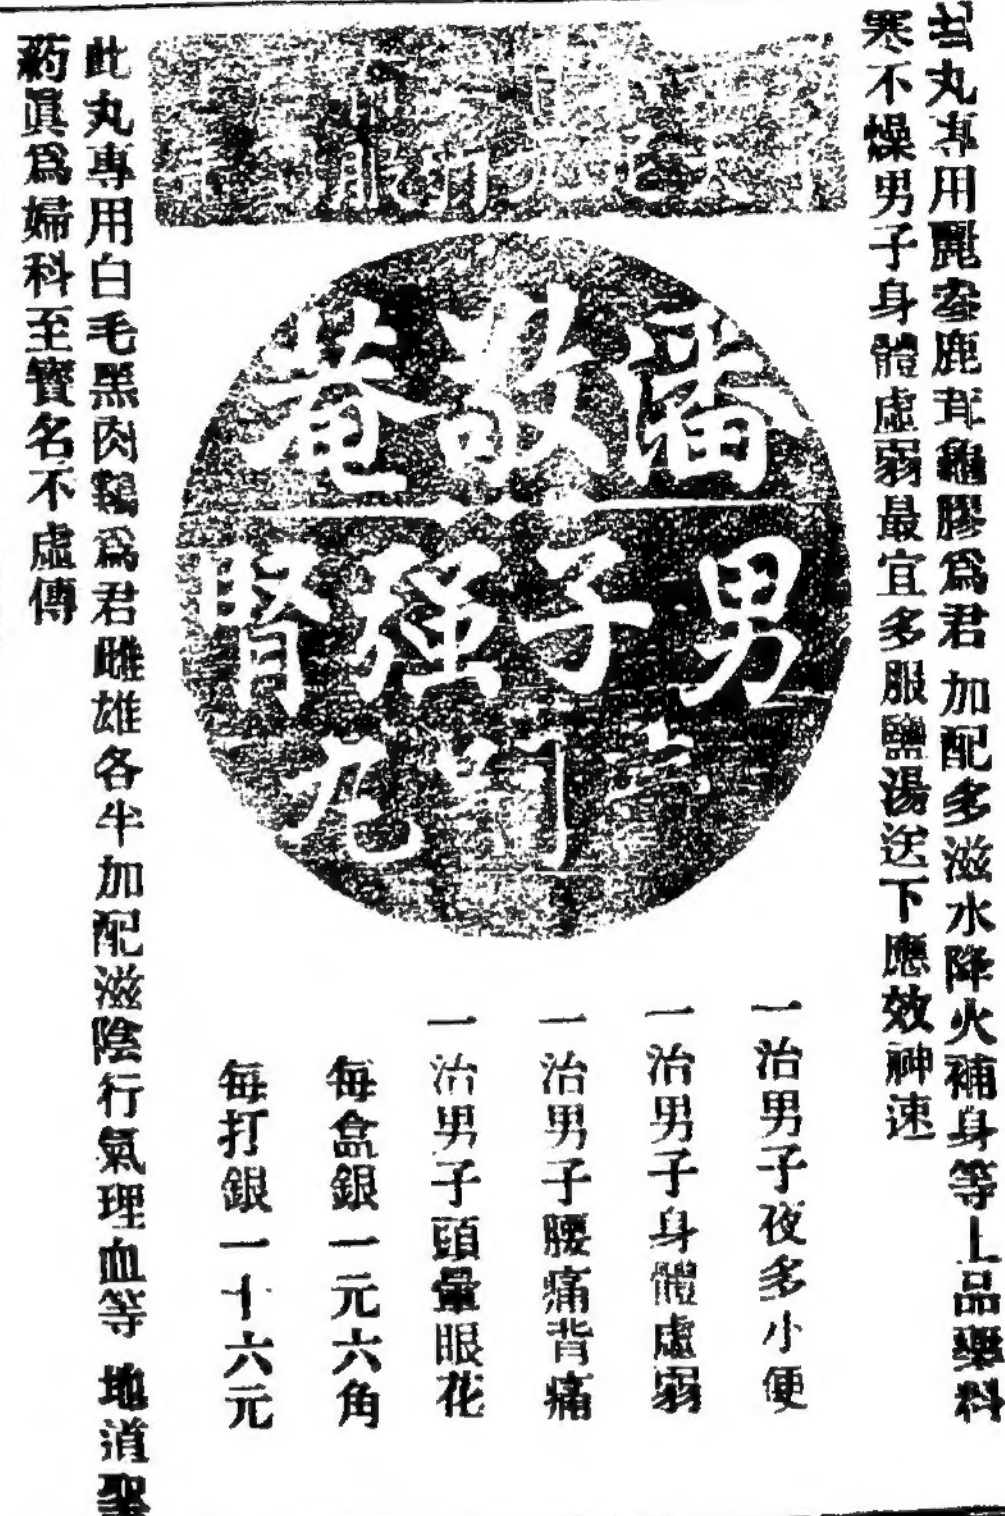 丸專用麗參鹿茸龜膠爲君加配多滋水降火補身等上品藥料
寒不燥男子身體虛弱最宜多服鹽湯送下應效神速
潘敬菴
男子强腎
丸
一治男子夜多小便
一治男子身體虛弱
一治男子腰痛背痛
一治男子頭暈眼花
每盒銀一元六角
每打銀一十六元
此丸專用白毛黑肉鷄爲君雌雄各半加配滋陰行氣理血等地道聖
葯眞爲婦科至寶名不虛傳